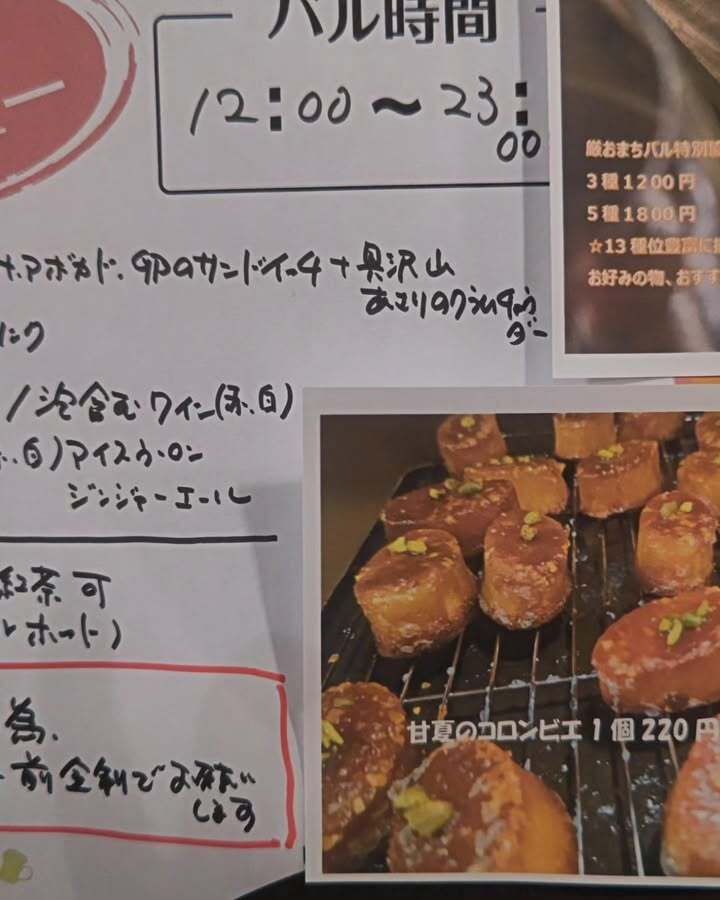 バル時間
12:00～23:00
厳おまちバル特別
3種1200円
5種1800円
☆13種位豊富に
お好みの物、おすす
アボカド、卵のサンドイッチ＋具沢山
あさりのクラムチャウダー
リンク
/泡含むワイン(赤、白)
白)アイスウーロン
ジンジャーエール
紅茶可
ホット)
為、
前金制でお願い
します
甘夏のコロンビエ1個220円